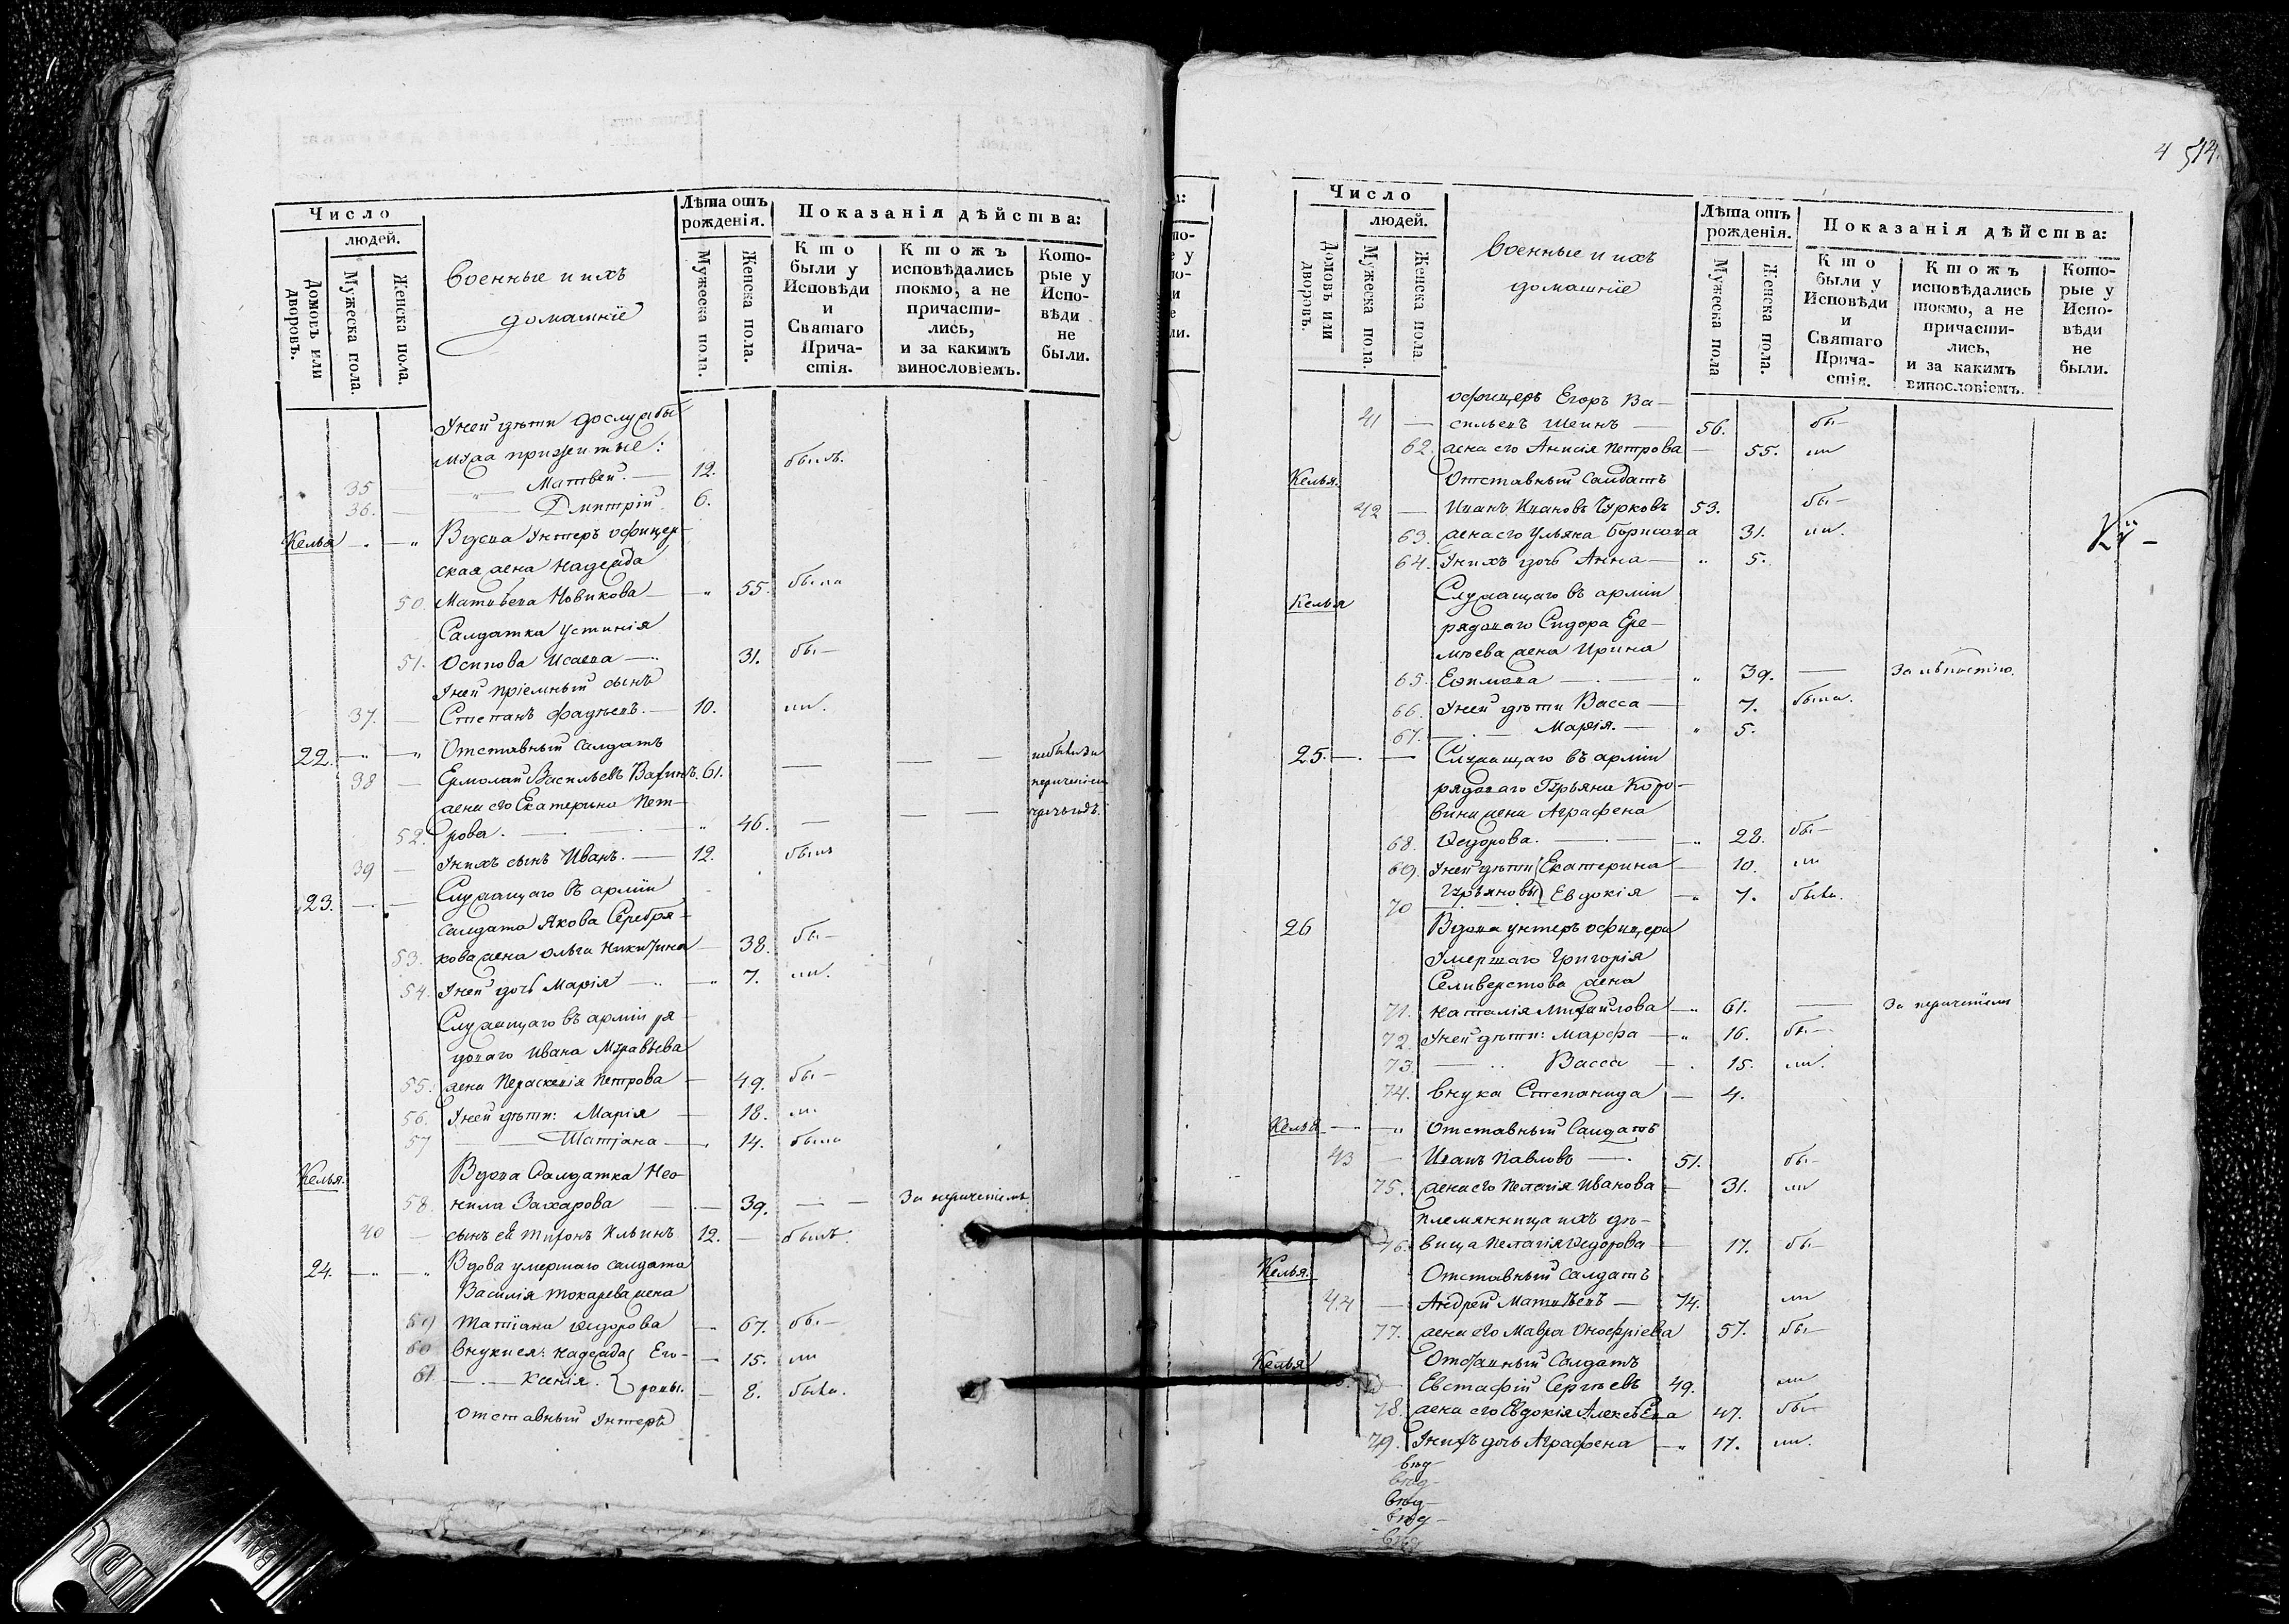 Число
людей.
Домовъ или дворовъ.
Мужеска пола
Женска пола.
Военные и ихъ
домашніе
Лѣта отъ рожденія.
Мужеска пола.
Женска пола.
Показанія дѣйства:
Кто были у Исповѣди и Святаго Причастія.
Ктожъ исповѣдались токмо, а не причастились, и за какимъ винословіемъ.
Которые у Исповѣди не были.
Уней дѣти дослужбы
мужа прижитые:
35 — Матвей. — 12. былъ.
36. — Дмитрій 6.
Келья Вдова Унтеръ офицер-
ская жена Надежда
50. Матвѣева Новикова — 55. была
Салдатка Устинія
51. Осипова Исаева — 31. бы—
Уней пріемный сынъ
37. — Степанъ Фадѣевъ. — 10.
22. Отставный Салдатъ
38 — Ермолай Васильевъ 61. —
жена его Екатерина Пет-
52. рова. — 46. —
39 — Унихъ сынъ Иванъ. — 12. былъ
23. — Служащаго въ арміи
салдата Якова Серебря-
53. кова жена Ольга Никитина — 38. бы—
54. Уней дочь Марія — 7.
Служащаго въ арміи ря-
доваго Ивана Муравьева
55. жена Параскевія Петрова — 49. бы—
56. Уней дѣти: Марія — 18.
57 — Татіана — 14. была
Келья. Вдова Салдатка Нео-
58. нила Захарова — 39. — За нерачениемъ
40 — сынъ ей Тихонъ Ильинъ 12. — былъ.
24. Вдова умершаго салдата
Василія Токарева жена
59 Татіана Ѳедорова — 67. бы—
60 внуки ея: Надежда Его- — 15.
61. — Ксенія. ровы. — 8. была.
Отставный Унтеръ
4 514.
Число
людей.
Домовъ или дворовъ.
Мужеска пола.
Женска пола.
Военные и ихъ
домашніе
Лѣта отъ рожденія.
Мужеска пола
Женска пола.
Показанія дѣйства:
Кто были у Исповѣди и Святаго Причастія.
Ктожъ исповѣдались токмо, а не причастились, и за какимъ винословіемъ.
Которые у Исповѣди не были.
офицеръ Егоръ Ва-
41 — сильевъ Шеинъ — 56. бы—
62. жена его Анисія Петрова — 55.
Келья. Отставный Салдатъ
42 — Иванъ Ивановъ Чурковъ 53. бы—
63. жена его Ульяна Борисова 31.
64. Унихъ дочь Анна — 5.
Келья Служащаго въ арміи
рядоваго Сидора Ере-
мѣева жена Ирина
65. Ефимова — 39. — За лѣностію.
66. Уней дѣти Васса — 7. была.
67. — Марія. — 5.
25. — Служащаго въ арміи
рядоваго Гурьяна Коро-
вина жена Аграфена
68. Ѳедорова. — 28. бы—
69. Уней дѣти Екатерина — 10.
70 Гурьяновы Евдокія — 7. была.
26 Вдова унтеръ офицера
Умершаго Григорія
Селиверстова жена
71. Наталія Михайлова — 61. — За нерачениемъ
72. Уней дѣти: Марфа — 16. бы—
73. — Васса — 15.
74. внука Степанида — 4.
Келья — Отставный Салдатъ
43 — Иванъ Павловъ — 51. бы—
75. жена его Пелагія Иванова — 31.
племянница ихъ дѣ-
76. вица Пелагія Ѳедорова — 17. бы—
Келья. Отставный Салдатъ
44 — Андрей Матвѣевъ — 74.
77. жена его Мавра Онофріева 57. бы—
Келья Отставный Салдатъ
— Евстафій Сергѣевъ 49.
78. жена его Евдокія Алексѣева 47. бы—
79. Унихъ дочь Аграфена — 17.